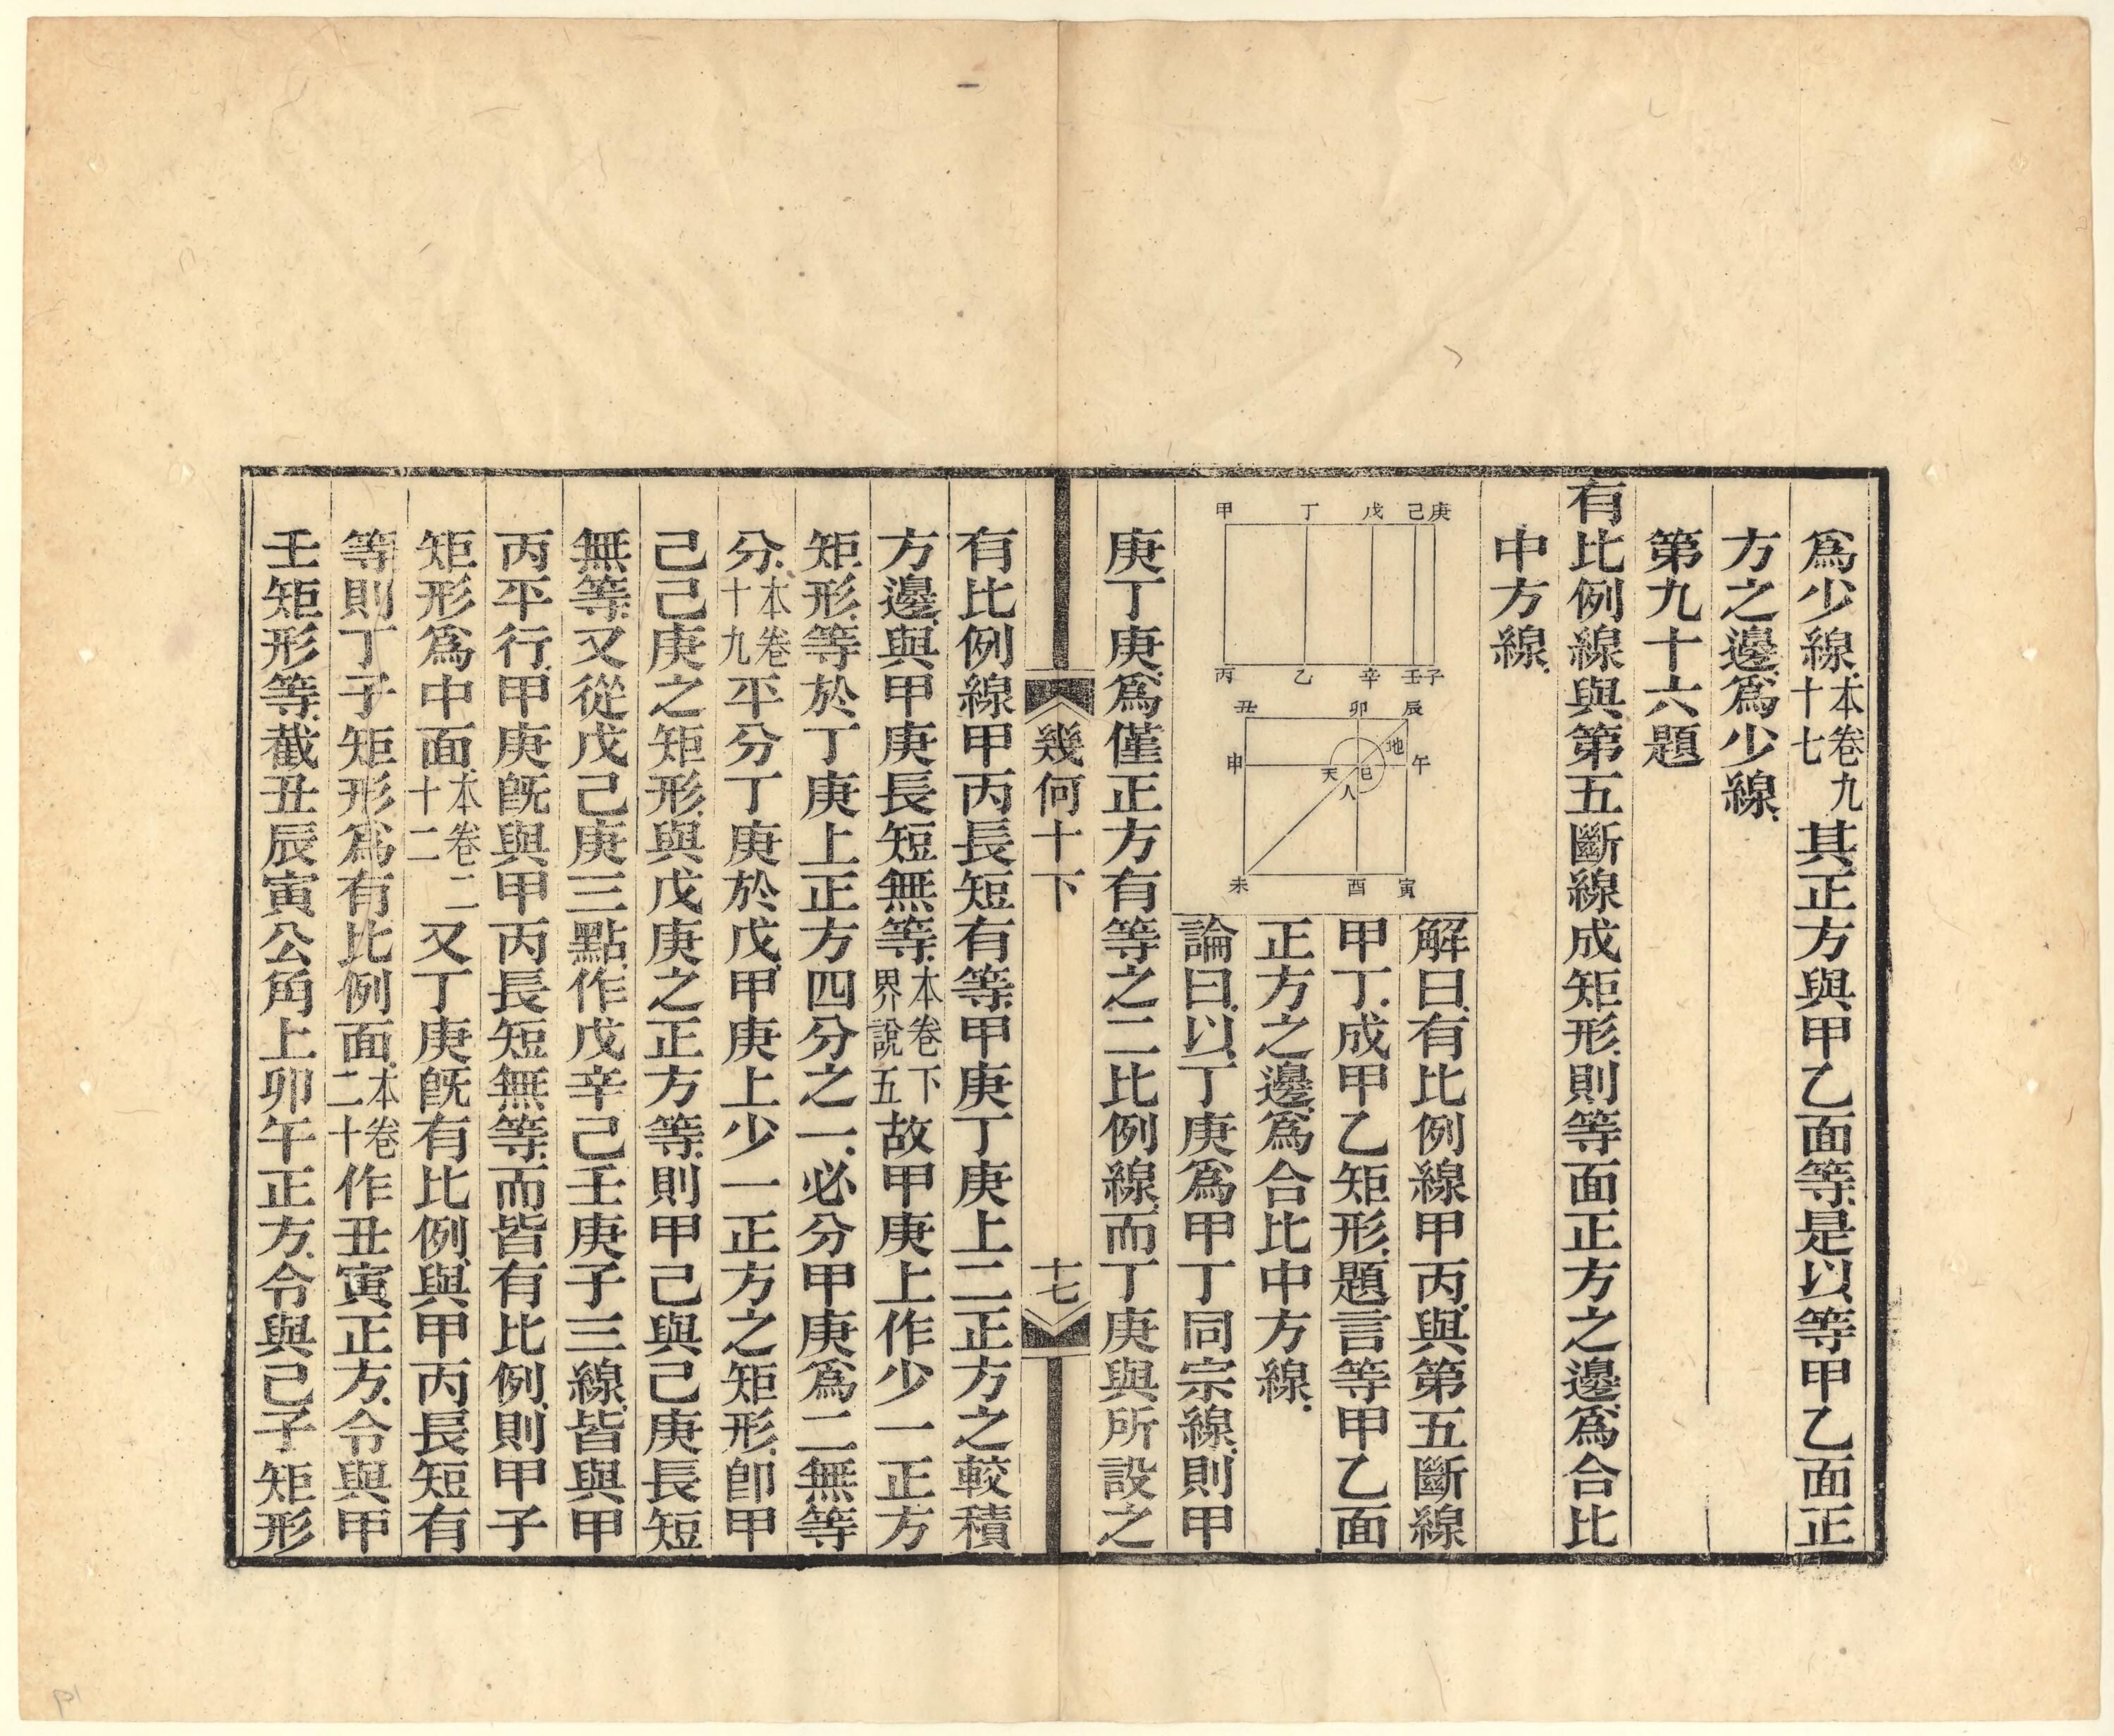 爲少線本卷九十七其正方與甲乙面等是以等甲乙面正
方之邊爲少線
第九十六題
有比例線與第五斷線成矩形則等面正方之邊爲合比
中方線
甲 丁 戊 己 庚
丙 乙 辛 壬 子
丑 卯 辰
地
申 天 巳 午
人
未 酉 寅
解曰有比例線甲丙與第五斷線
甲丁成甲乙矩形題言等甲乙面
正方之邊爲合比中方線
論曰以丁庚爲甲丁同宗線則甲
庚丁庚爲僅正方有等之二比例線而丁庚與所設之
幾何十下 十七
有比例線甲丙長短有等甲庚丁庚上二正方之較積
方邊與甲庚長短無等本卷下界說五故甲庚上作少一正方
矩形等於丁庚上正方四分之一必分甲庚爲二無等
分本卷十九平分丁庚於戊甲庚上少一正方之矩形卽甲
己己庚之矩形與戊庚之正方等則甲己與己庚長短
無等又從戊己庚三點作戊辛己壬庚子三線皆與甲
丙平行甲庚旣與甲丙長短無等而皆有比例則甲子
矩形爲中面本卷二十二又丁庚旣有比例與甲丙長短有
等則丁子矩形爲有比例面本卷二十作丑寅正方令與甲
壬矩形等截丑辰寅公角上卯午正方令與己子矩形